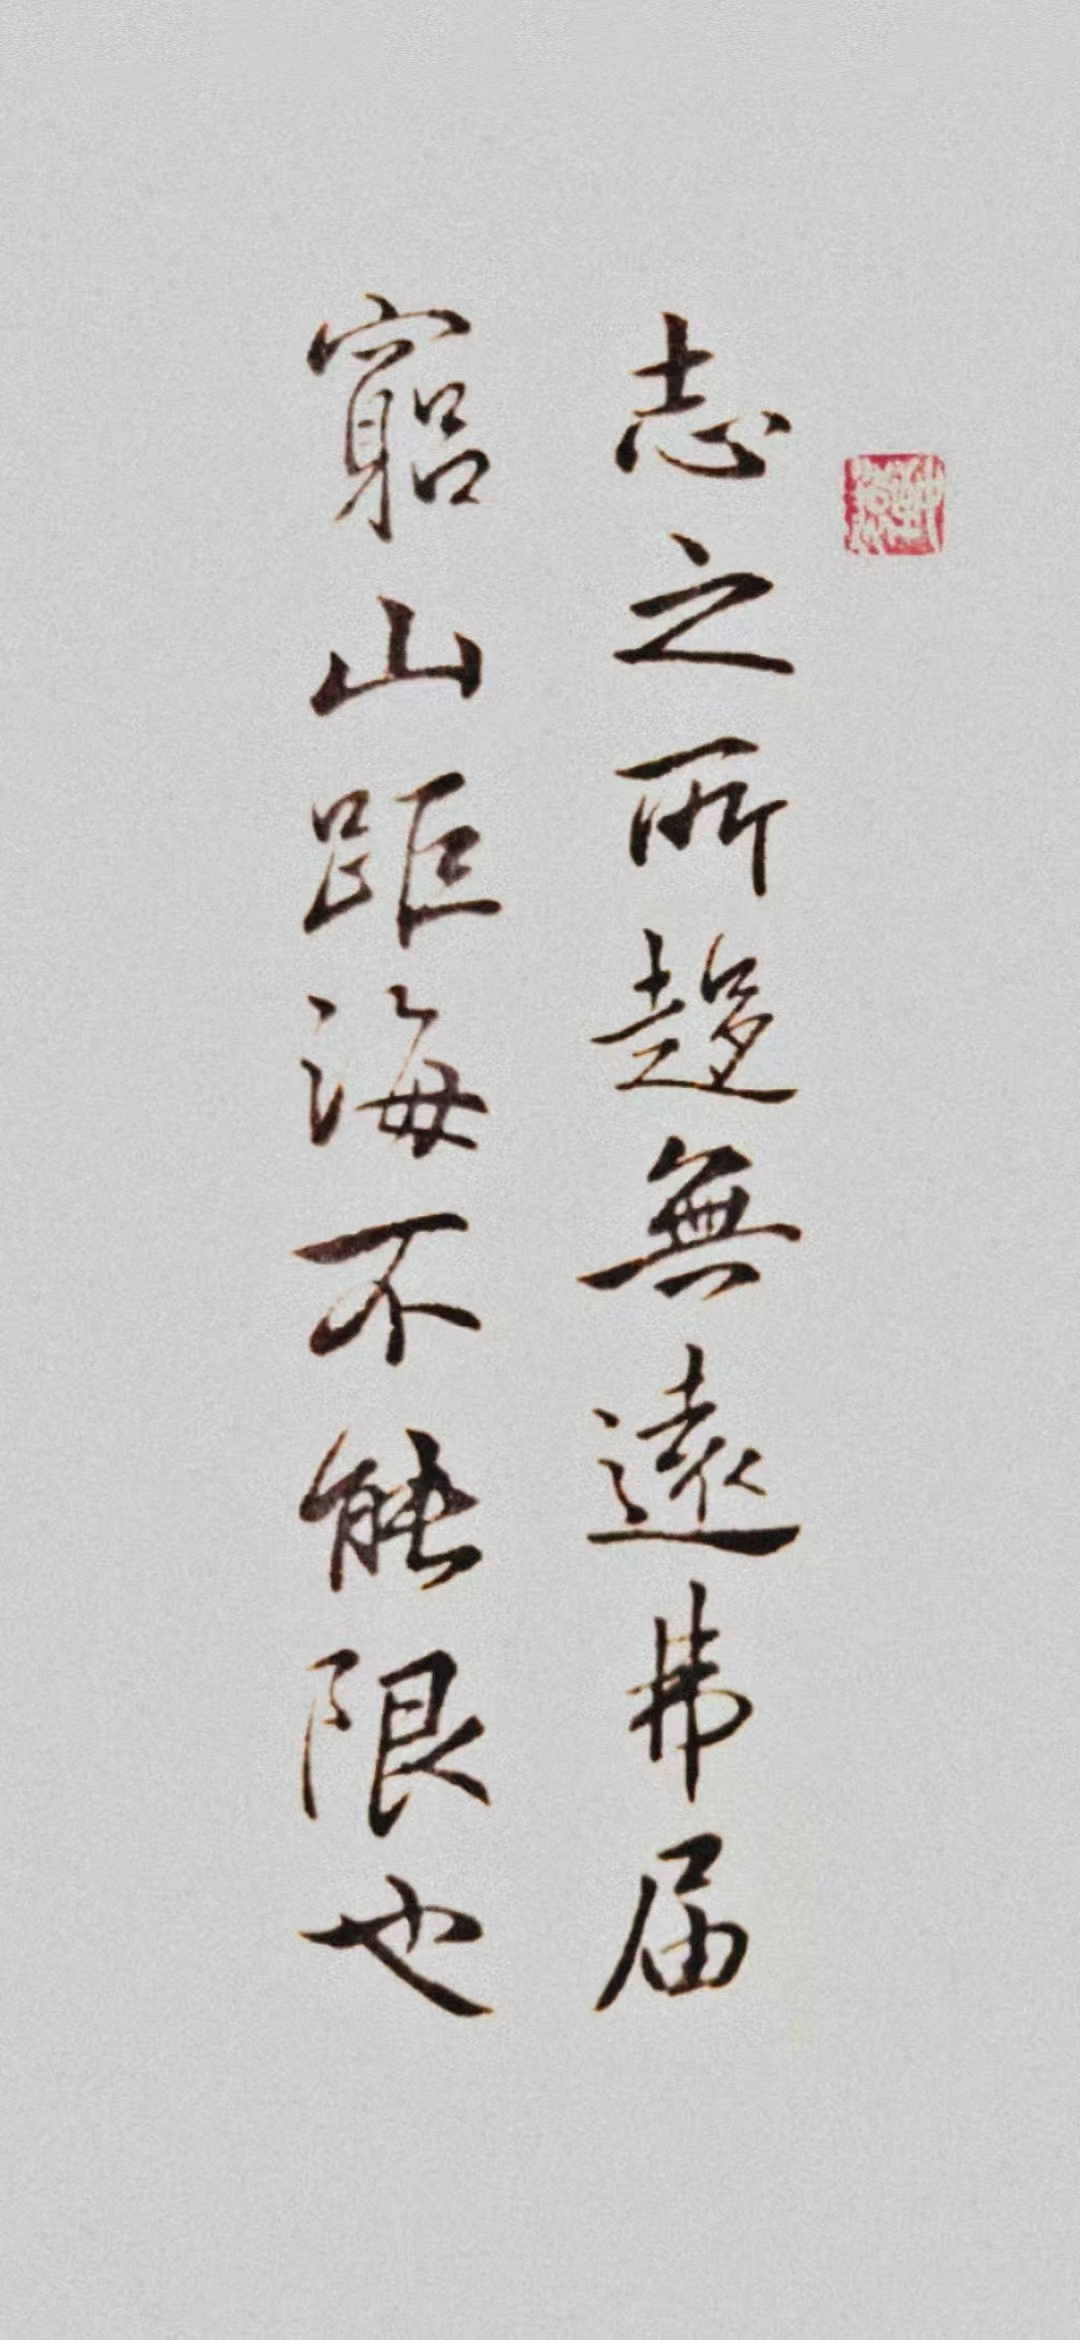 志之所趨無遠弗届
窮山距海不能限也